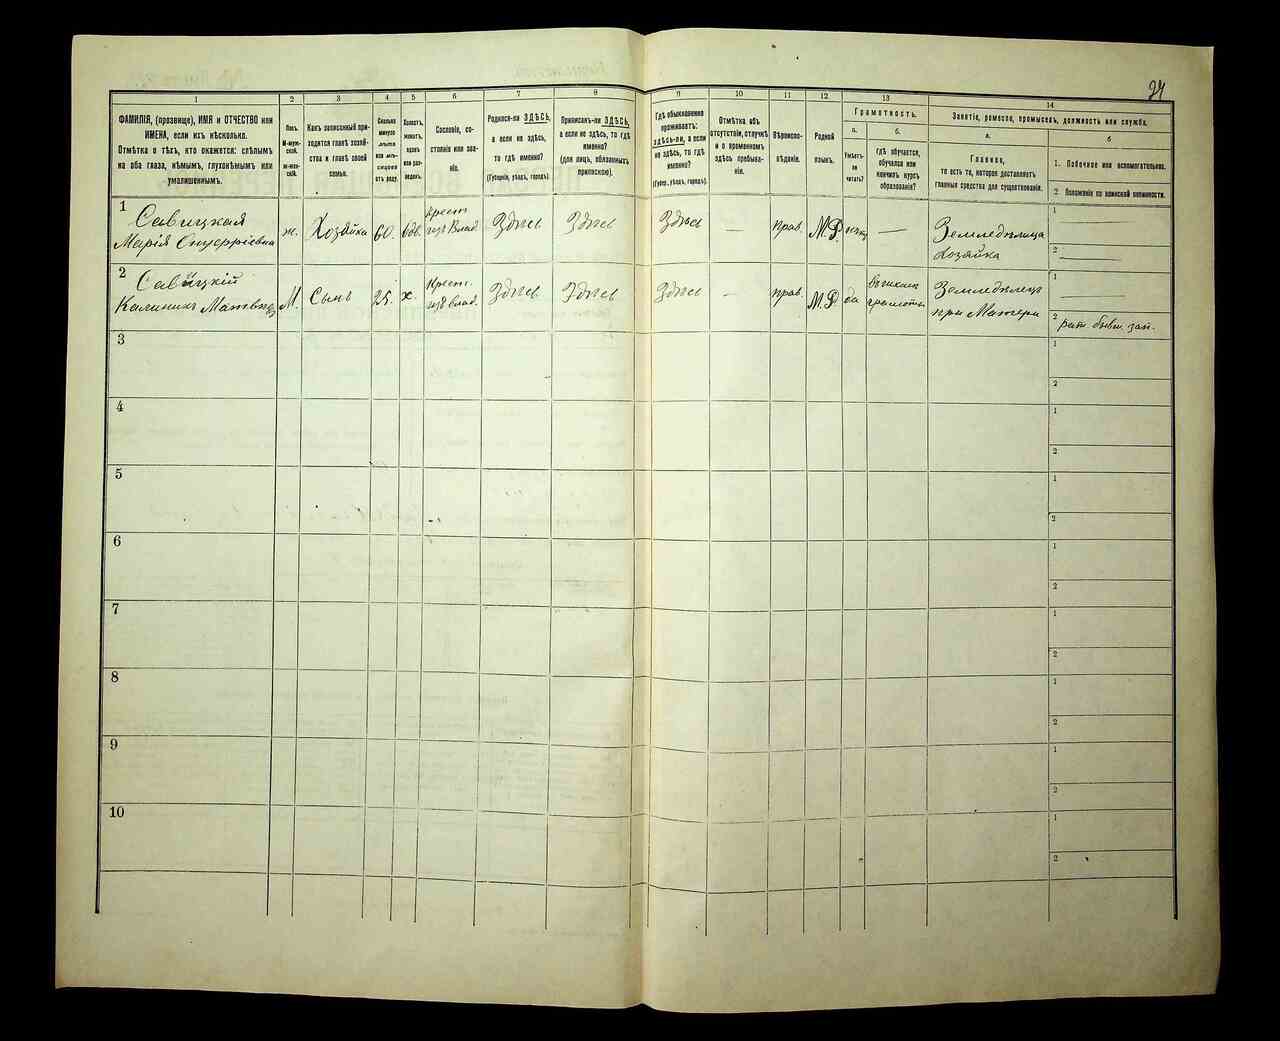 24
1
2
3
4
5
6
7
8
9
10
11
12
13
14
ФАМИЛІЯ, (прозвище), ИМЯ и ОТЧЕСТВО или
ИМЕНА, если ихъ нѣсколько.
Отмѣтка о тѣхъ, кто окажется: слѣпымъ
на оба глаза, нѣмымъ, глухонѣмымъ или
умалишеннымъ.
Полъ.
М-муж-
ской.
ж-жен-
скій.
Какъ записанный при-
ходится главѣ хозяй-
ства и главѣ своей
семьи.
Сколько
минуло
лѣтъ
или мѣ-
сяцевъ
отъ роду.
Холостъ,
женатъ,
вдовъ
или раз-
веденъ.
Сословіе, со-
стояніе или зва-
ніе.
Родился-ли ЗДѢСЬ,
а если не здѣсь,
то гдѣ именно?
(Губернія, уѣздъ, городъ).
Приписанъ-ли ЗДѢСЬ,
а если не здѣсь, то гдѣ
именно?
(для лицъ, обязанныхъ
припискою).
Гдѣ обыкновенно
проживаетъ:
здѣсь-ли, а если
не здѣсь, то гдѣ
именно?
(Губерн., уѣздъ, городъ).
Отмѣтка объ
отсутствіи, отлучкѣ
и о временномъ
здѣсь пребыва-
ніи.
Вѣроиспо-
вѣданіе.
Родной
языкъ.
Грамотность.
а.
Умѣетъ-
ли
читать?
б.
гдѣ обучается,
обучался или
кончилъ курсъ
образованія?
Занятіе, ремесло, промыселъ, должность или служба.
а.
Главное,
то есть то, которое доставляетъ
главныя средства для существованія.
б
1. Побочное или вспомогательное.
2 Положеніе по воинской повинности.
1
Савицкая
Марія Онуфріевна
ж.
Хозяйка
60.
вдв.
Крест
изъ Влад
Здѣсь
Здѣсь
Здѣсь
—
прав.
М.Р.
—
Земледѣлица
Хозяйка
1
2
2
Савицкій
Калиникъ
М.
Сынъ
25.
х.
Крест.
изъ влад.
Здѣсь
Здѣсь
Здѣсь
—
прав.
М.Р
да
грамоты
Земледѣлецъ
при Матери
1
2
рат.
3
1
2
4
1
2
5
1
2
6
1
2
7
1
2
8
1
2
9
1
2
10
1
2